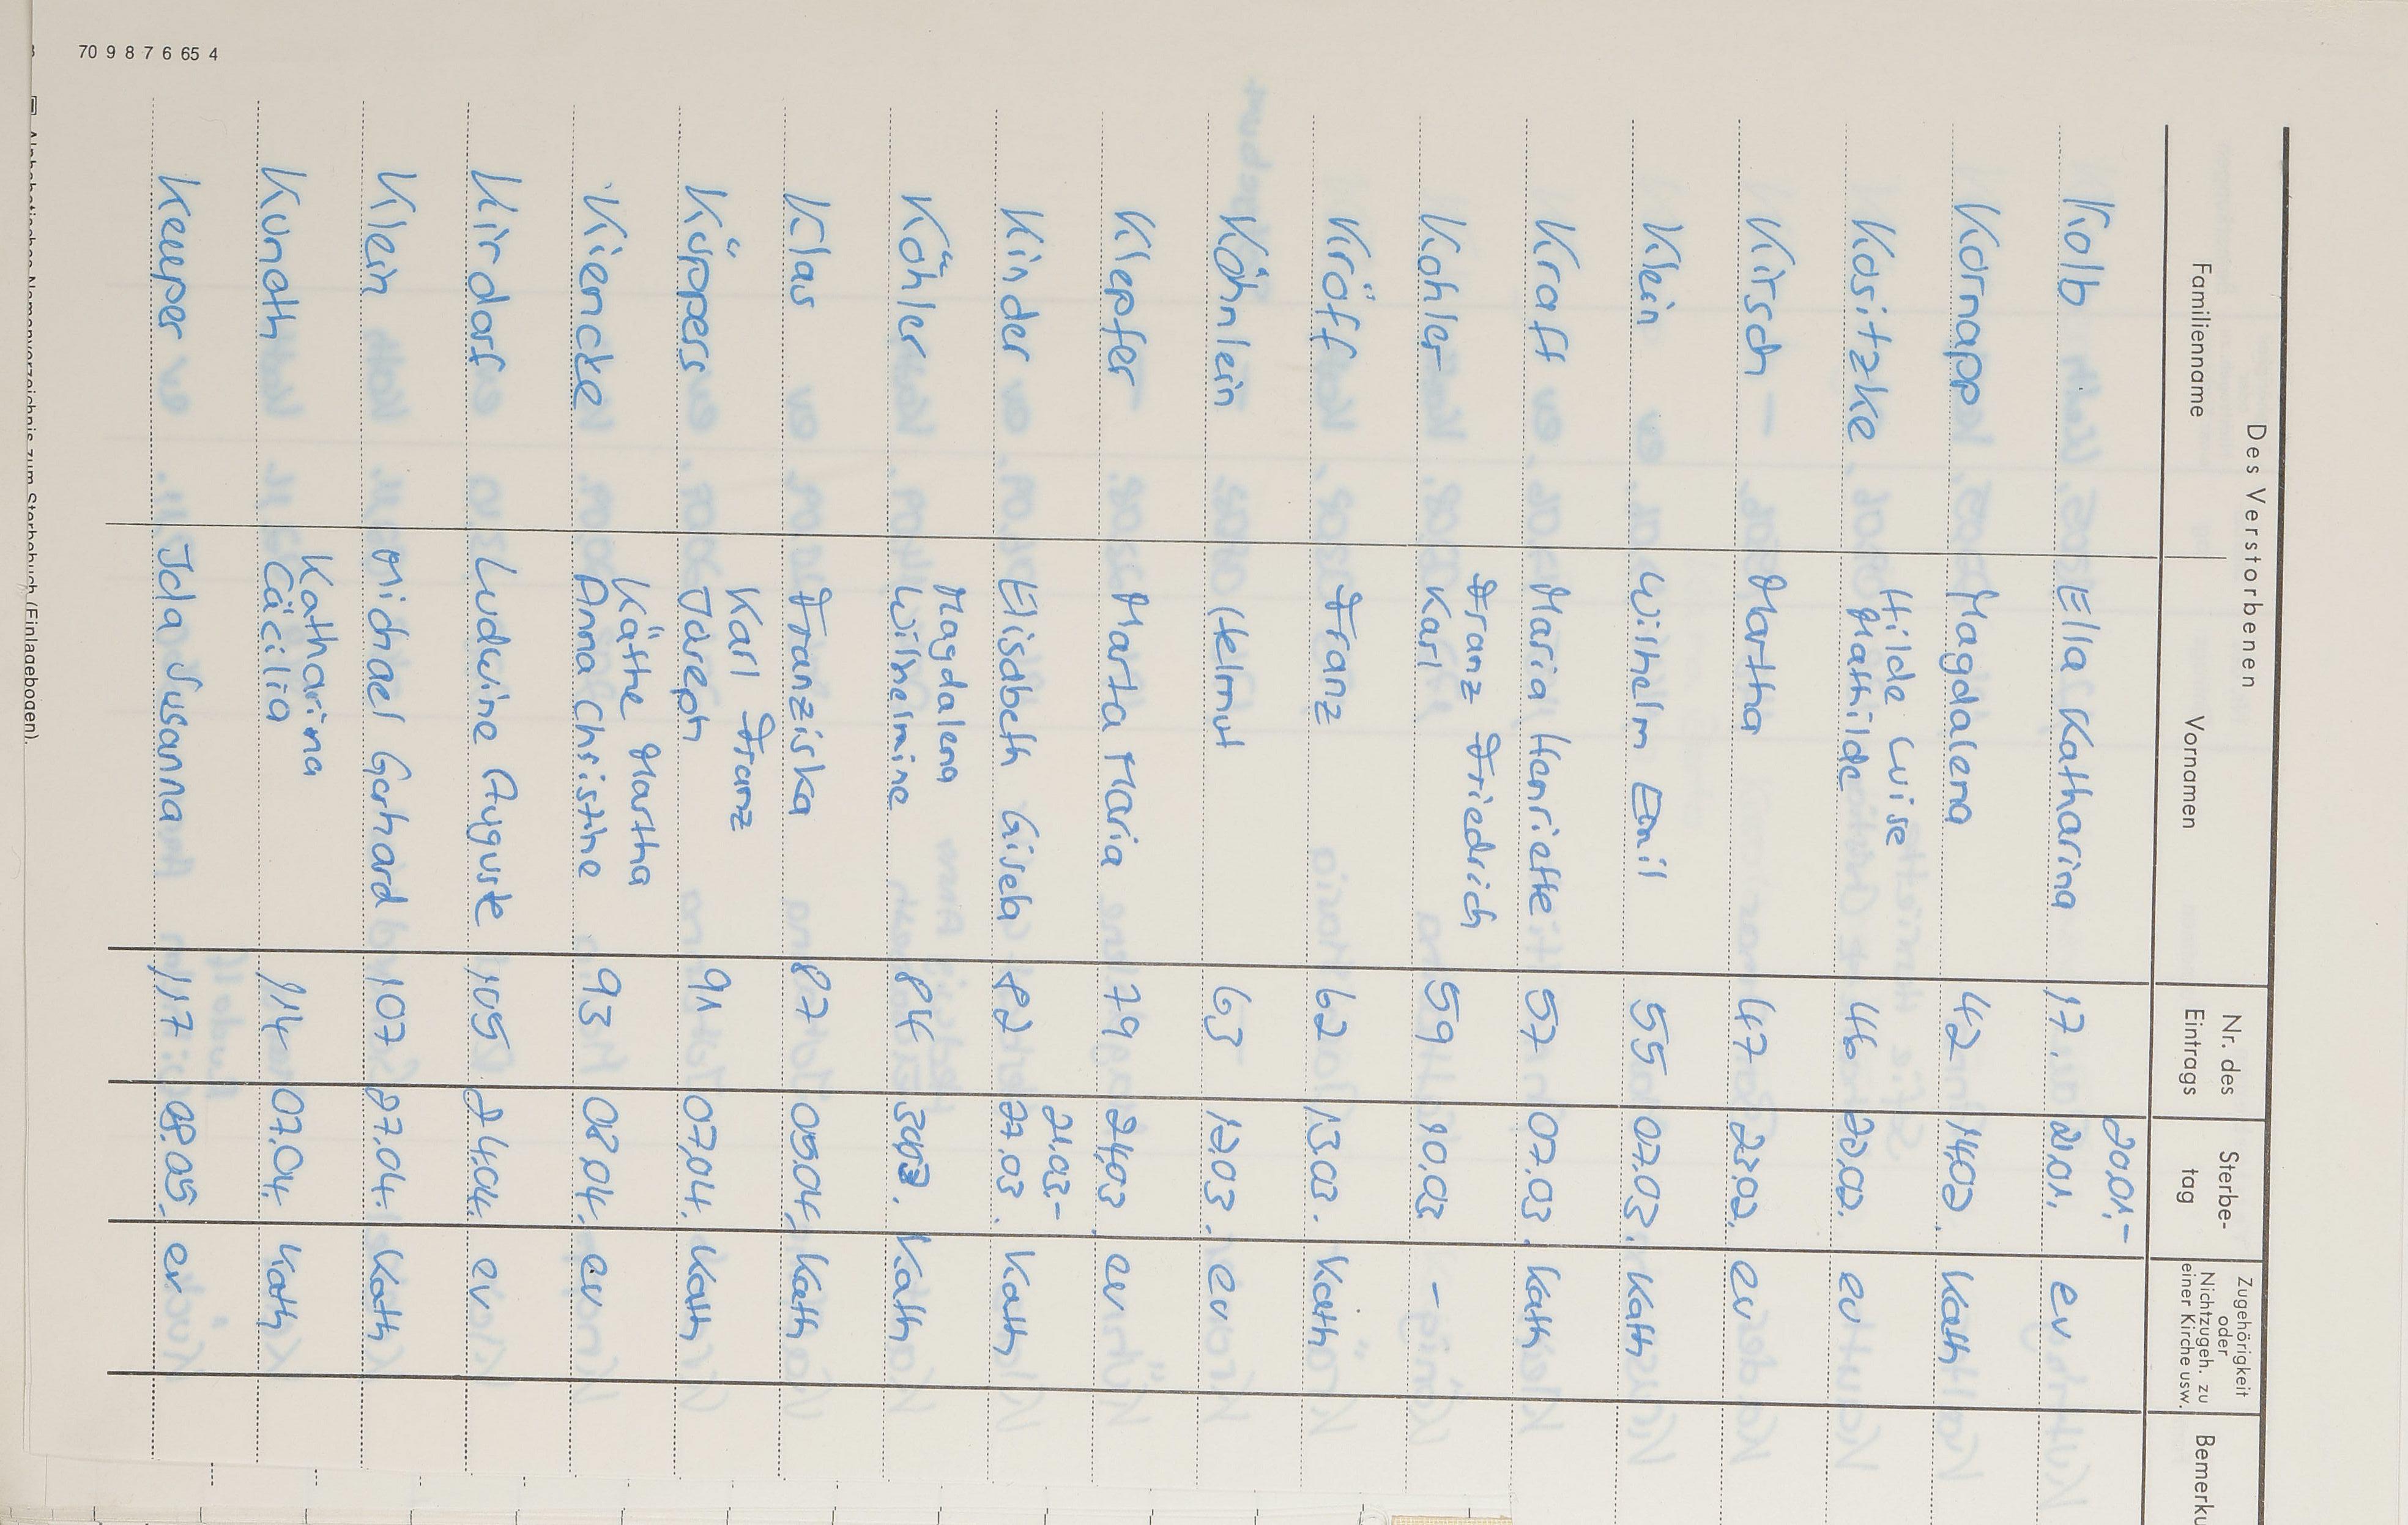 Des Verstorbenen
Familienname Vornamen Nr. des Eintrags Sterbe- tag Zugehörigkeit oder Nichtzugeh. zu einer Kirche usw. Bemerku
20.01.-
Kolb Ella Katharina 17 21.01. ev
Kornapp Magdalena 42 14.02. Kath
Hilde Luise
Kositzke Mathilde 46 22.02. ev
Kirsch Martha 47 23.02. ev
Klein Wilhelm Emil 55 07.03. Kath
Kraft Maria Henriette 57 07.03. Kath
Franz Friedrich
Kohler Karl 59 10.03. -
Kröff Franz 62 13.03. Kath
Köhnlein Helmut 63 12.03. ev
Klepfer Marta Maria 79 24.03. ev
21.03.-
Kinder Elisabeth Gisela 82 27.03. Kath
Magdalena
Köhler Wilhelmine 84 Kath
Klas Franziska 87 05.04. Kath
Karl Franz
Küppers Joseph 91 07.04. Kath
Käthe Martha
Kiencke Anna Christine 93 08.04. ev
Kirdorf Ludwine Auguste 105 24.04. ev
Klein Michael Gerhard 107 27.04. Kath
Katharina
Kundth Cäcilia 114 07.04. Kath
Keuper Ida Susanna 117 08.05. ev
70 9 8 7 6 65 4
Alphabetisches Namenverzeichnis zum Sterbebuch (Einlagebogen).